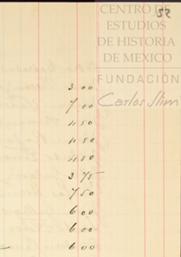 52
CENTRO DE
ESTUDIOS
DE HISTORIA
DE MEXICO
FUNDACIÓN
Carlos Slim
3 00
7 00
4 50
4 50
4 50
3 75
7 50
6 00
6 00
6 00